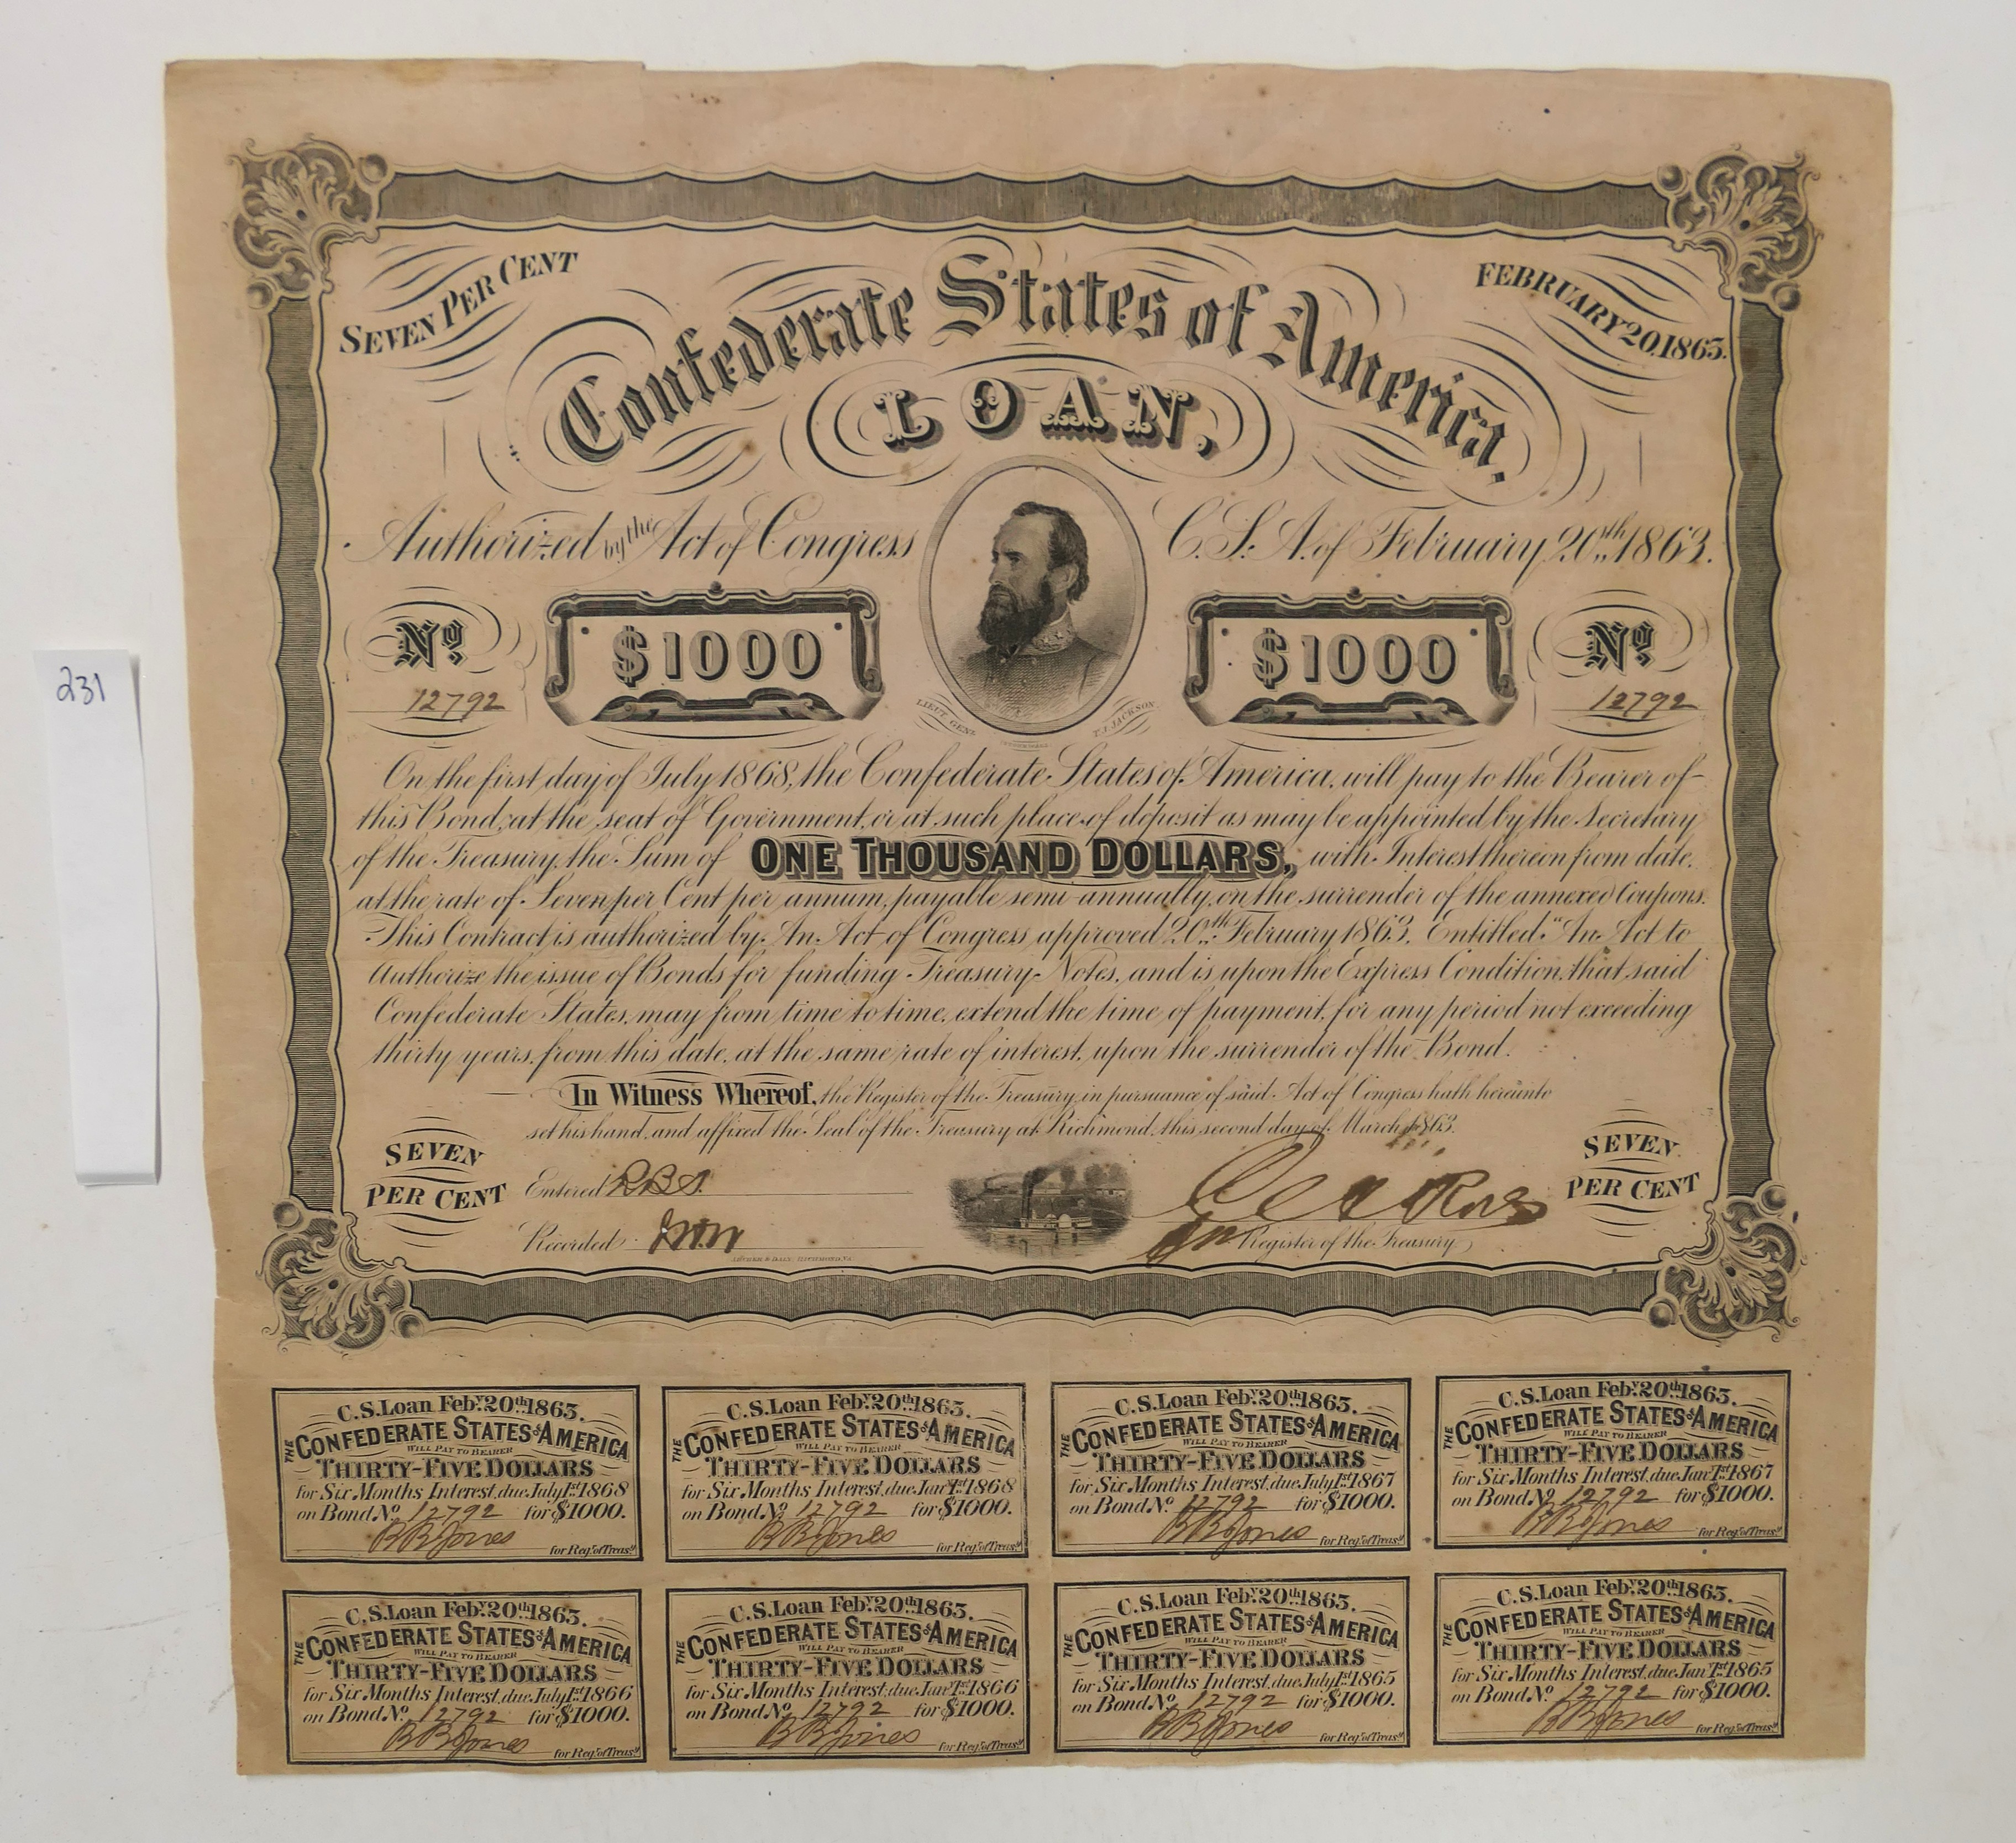 231
SEVEN PER CENT
FEBRUARY 20, 1863.
Confederate States of America.
LOAN,
Authorized by the Act of Congress C.S.A. of February 20th 1863.
No $1000 $1000 No
12792 12792
LIEUT. GENL. T.J. JACKSON
On the first day of July 1868, the Confederate States of America, will pay to the Bearer of
this Bond, at the seat of Government, or at such place of deposit as may be appointed by the Secretary
of the Treasury, the Sum of ONE THOUSAND DOLLARS, with Interest thereon from date,
at the rate of Seven per Cent per annum, payable semi-annually, on the surrender of the annexed Coupons.
This Contract is authorized by An Act of Congress approved 20th February 1863, Entitled "An Act to
Authorize the issue of Bonds for funding Treasury Notes, and is upon the Express Condition, that said
Confederate States, may from time to time, extend the time of payment, for any period not exceeding
thirty years, from this date, at the same rate of interest, upon the surrender of the Bond.
In Witness Whereof, the Register of the Treasury, in pursuance of said Act of Congress hath hereunto
set his hand, and affixed the Seal of the Treasury at Richmond, this second day of March 1863.
SEVEN
PER CENT
Entered
Recorded
ARCHER & DALY, RICHMOND, VA.
Register of the Treasury
SEVEN
PER CENT
C.S. Loan Feby. 20th 1863.
THE CONFEDERATE STATES of AMERICA
WILL PAY TO BEARER
THIRTY-FIVE DOLLARS
for Six Months Interest, due July 1st 1868
on Bond No. 12792 for $1000.
B B Jones
for Reg. of Treasy.
C.S. Loan Feby. 20th 1863.
THE CONFEDERATE STATES of AMERICA
WILL PAY TO BEARER
THIRTY-FIVE DOLLARS
for Six Months Interest, due Jany 1st 1868
on Bond No. 12792 for $1000.
B B Jones
for Reg. of Treasy.
C.S. Loan Feby. 20th 1863.
THE CONFEDERATE STATES of AMERICA
WILL PAY TO BEARER
THIRTY-FIVE DOLLARS
for Six Months Interest, due July 1st 1867
on Bond No. 12792 for $1000.
B B Jones
for Reg. of Treasy.
C.S. Loan Feby. 20th 1863.
THE CONFEDERATE STATES of AMERICA
WILL PAY TO BEARER
THIRTY-FIVE DOLLARS
for Six Months Interest, due Jany 1st 1867
on Bond No. 12792 for $1000.
B B Jones
for Reg. of Treasy.
C.S. Loan Feby. 20th 1863.
THE CONFEDERATE STATES of AMERICA
WILL PAY TO BEARER
THIRTY-FIVE DOLLARS
for Six Months Interest, due July 1st 1866
on Bond No. 12792 for $1000.
B B Jones
for Reg. of Treasy.
C.S. Loan Feby. 20th 1863.
THE CONFEDERATE STATES of AMERICA
WILL PAY TO BEARER
THIRTY-FIVE DOLLARS
for Six Months Interest, due Jany 1st 1866
on Bond No. 12792 for $1000.
B B Jones
for Reg. of Treasy.
C.S. Loan Feby. 20th 1863.
THE CONFEDERATE STATES of AMERICA
WILL PAY TO BEARER
THIRTY-FIVE DOLLARS
for Six Months Interest, due July 1st 1865
on Bond No. 12792 for $1000.
B B Jones
for Reg. of Treasy.
C.S. Loan Feby. 20th 1863.
THE CONFEDERATE STATES of AMERICA
WILL PAY TO BEARER
THIRTY-FIVE DOLLARS
for Six Months Interest, due Jany 1st 1865
on Bond No. 12792 for $1000.
B B Jones
for Reg. of Treasy.